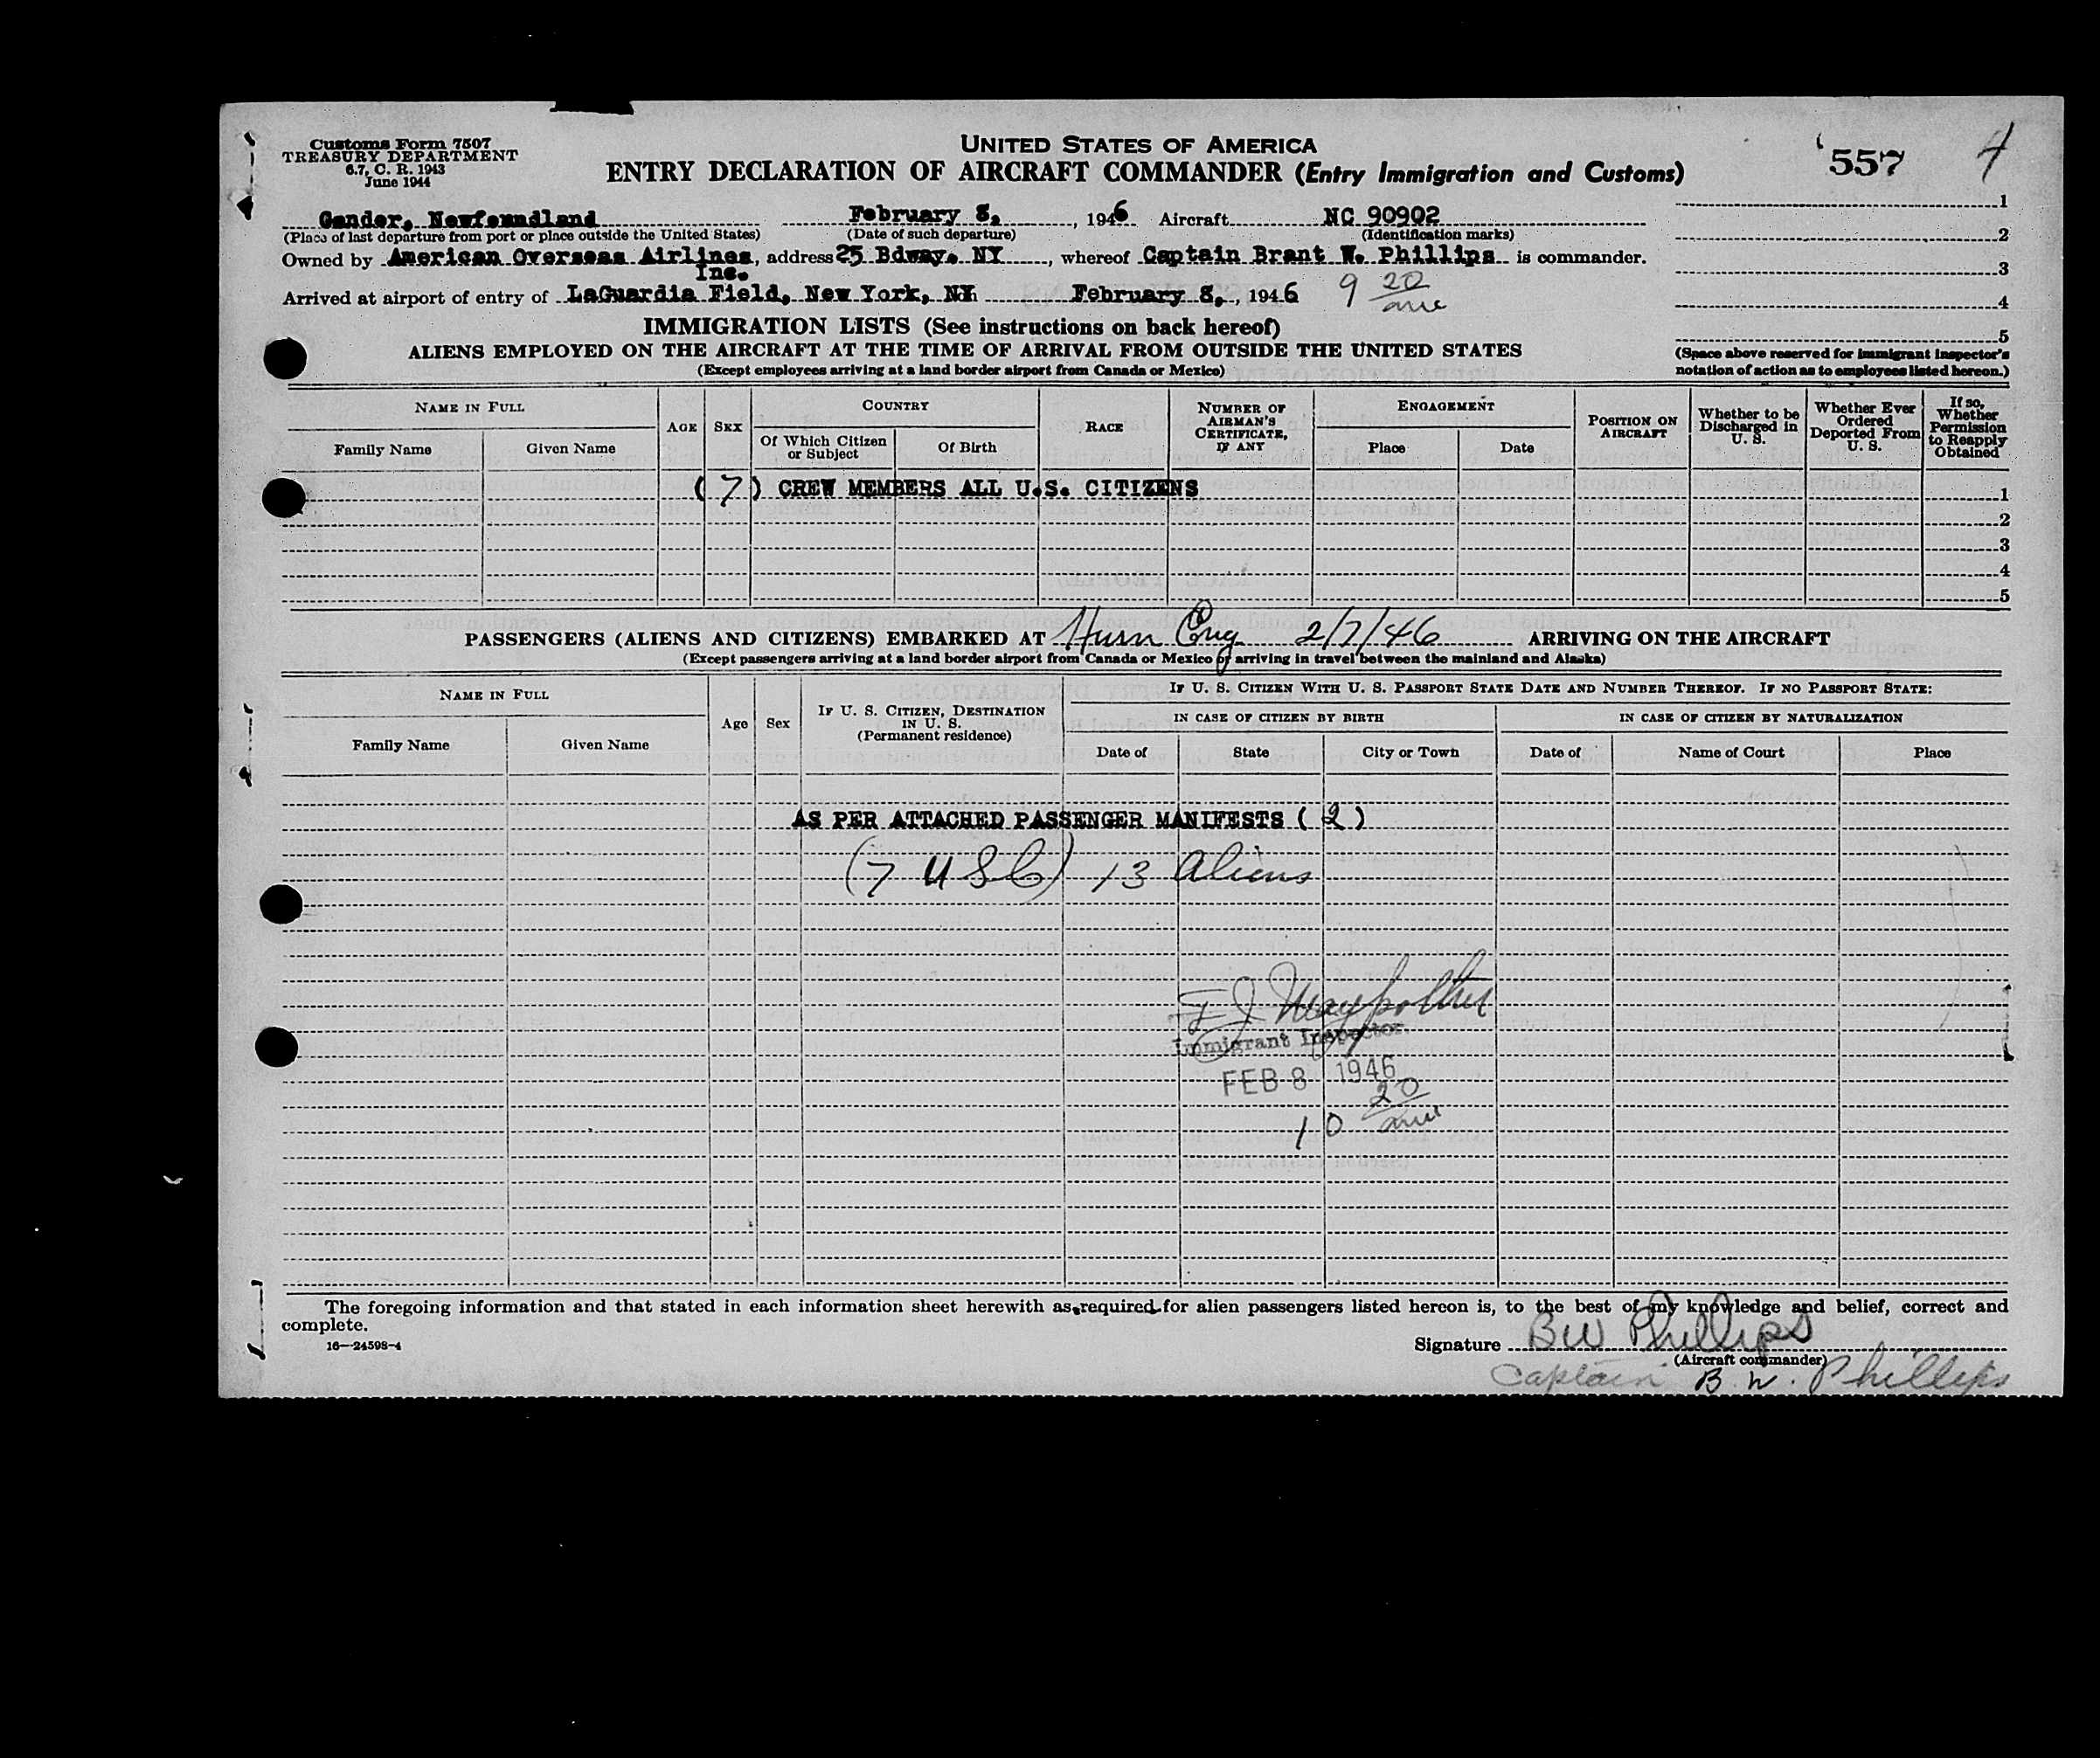 Customs Form 7507
TREASURY DEPARTMENT
6.7, C. R. 1943
June 1944
UNITED STATES OF AMERICA
ENTRY DECLARATION OF AIRCRAFT COMMANDER (Entry Immigration and Customs)
557
Gander, Newfoundland February 8, 1946 Aircraft NC 90902
(Place of last departure from port or place outside the United States) (Date of such departure) (Identification marks)
Owned by American Overseas Airlines, address 25 Bdway. NY, whereof Captain Brant W. Phillips is commander.
Inc.
Arrived at airport of entry of LaGuardia Field, New York, NY February 8, 1946 9 20 am
1
2
3
4
5
(Space above reserved for immigrant inspector's notation of action as to employees listed hereon.)
IMMIGRATION LISTS (See instructions on back hereof)
ALIENS EMPLOYED ON THE AIRCRAFT AT THE TIME OF ARRIVAL FROM OUTSIDE THE UNITED STATES
(Except employees arriving at a land border airport from Canada or Mexico)
NAME IN FULL
Family Name
Given Name
AGE
SEX
COUNTRY
Of Which Citizen or Subject
Of Birth
RACE
NUMBER OF AIRMAN'S CERTIFICATE, IF ANY
ENGAGEMENT
Place
Date
POSITION ON AIRCRAFT
Whether to be Discharged in U. S.
Whether Ever Ordered Deported From U. S.
If so, Whether Permission to Reapply Obtained
(7) CREW MEMBERS ALL U.S. CITIZENS
1
2
3
4
5
PASSENGERS (ALIENS AND CITIZENS) EMBARKED AT Hurn Eng 2/7/46 ARRIVING ON THE AIRCRAFT
(Except passengers arriving at a land border airport from Canada or Mexico or arriving in travel between the mainland and Alaska)
NAME IN FULL
Family Name
Given Name
Age
Sex
IF U. S. CITIZEN, DESTINATION IN U. S.
(Permanent residence)
IF U. S. CITIZEN WITH U. S. PASSPORT STATE DATE AND NUMBER THEREOF. IF NO PASSPORT STATE:
IN CASE OF CITIZEN BY BIRTH
Date of
State
City or Town
IN CASE OF CITIZEN BY NATURALIZATION
Date of
Name of Court
Place
AS PER ATTACHED PASSENGER MANIFESTS (2)
(7 USC) 13 Aliens
Immigrant Inspector
FEB 8 1946
10 20 am
The foregoing information and that stated in each information sheet herewith as required for alien passengers listed hereon is, to the best of my knowledge and belief, correct and
complete.
16—24598-4
Signature BW Phillips
(Aircraft commander)
Captain B. W. Phillips